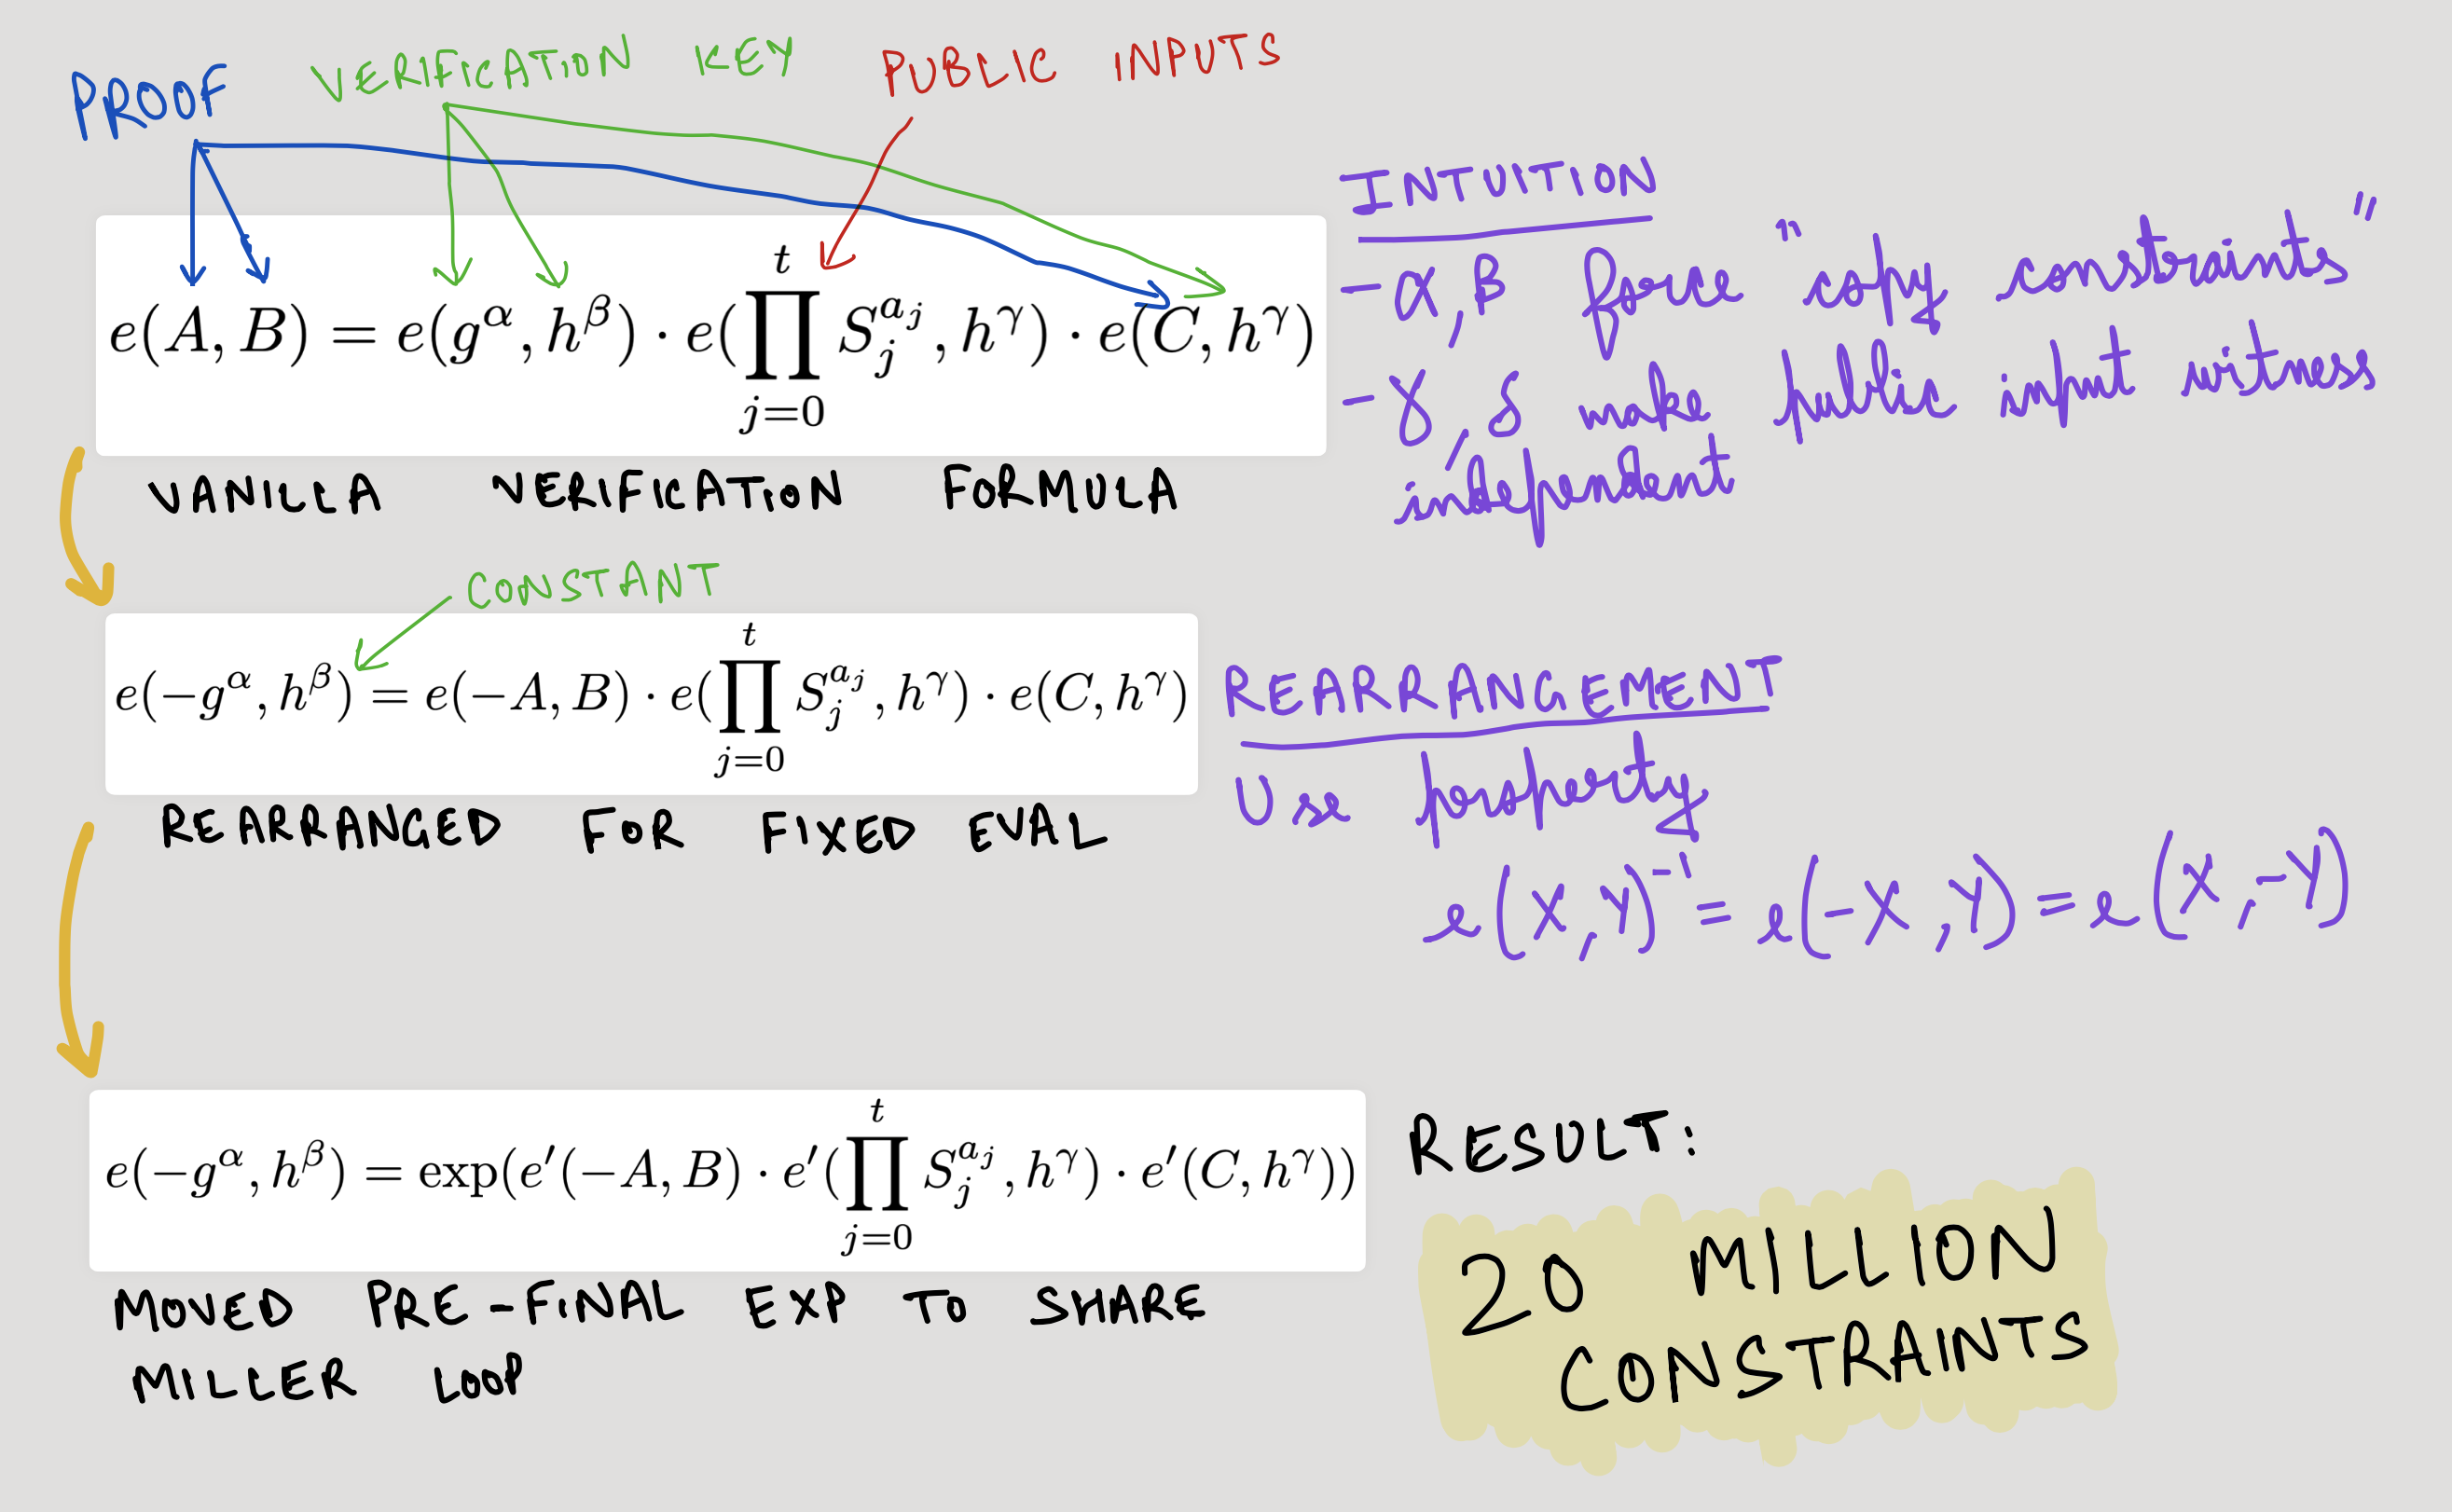 PROOF
VERIFICATION KEY
PUBLIC INPUTS
e(A, B) = e(g^α, h^β) · e(∏_{j=0}^{t} S_j^{a_j}, h^γ) · e(C, h^γ)
VANILLA VERIFICATION FORMULA
INTUITION
- α, β force "only constraints"
- γ, δ make public input witness
independent
CONSTANT
e(−g^α, h^β) = e(−A, B) · e(∏_{j=0}^{t} S_j^{a_j}, h^γ) · e(C, h^γ)
REARRANGED FOR FIXED EVAL
REARRANGEMENT
Use property
e(X, Y)^{-1} = e(-X, Y) = e(X, -Y)
e(−g^α, h^β) = exp(e′(−A, B) · e′(∏_{j=0}^{t} S_j^{a_j}, h^γ) · e′(C, h^γ))
MOVED PRE-FINAL EXP TO SHARE
MILLER LOOP
RESULT:
20 MILLION
CONSTRAINTS